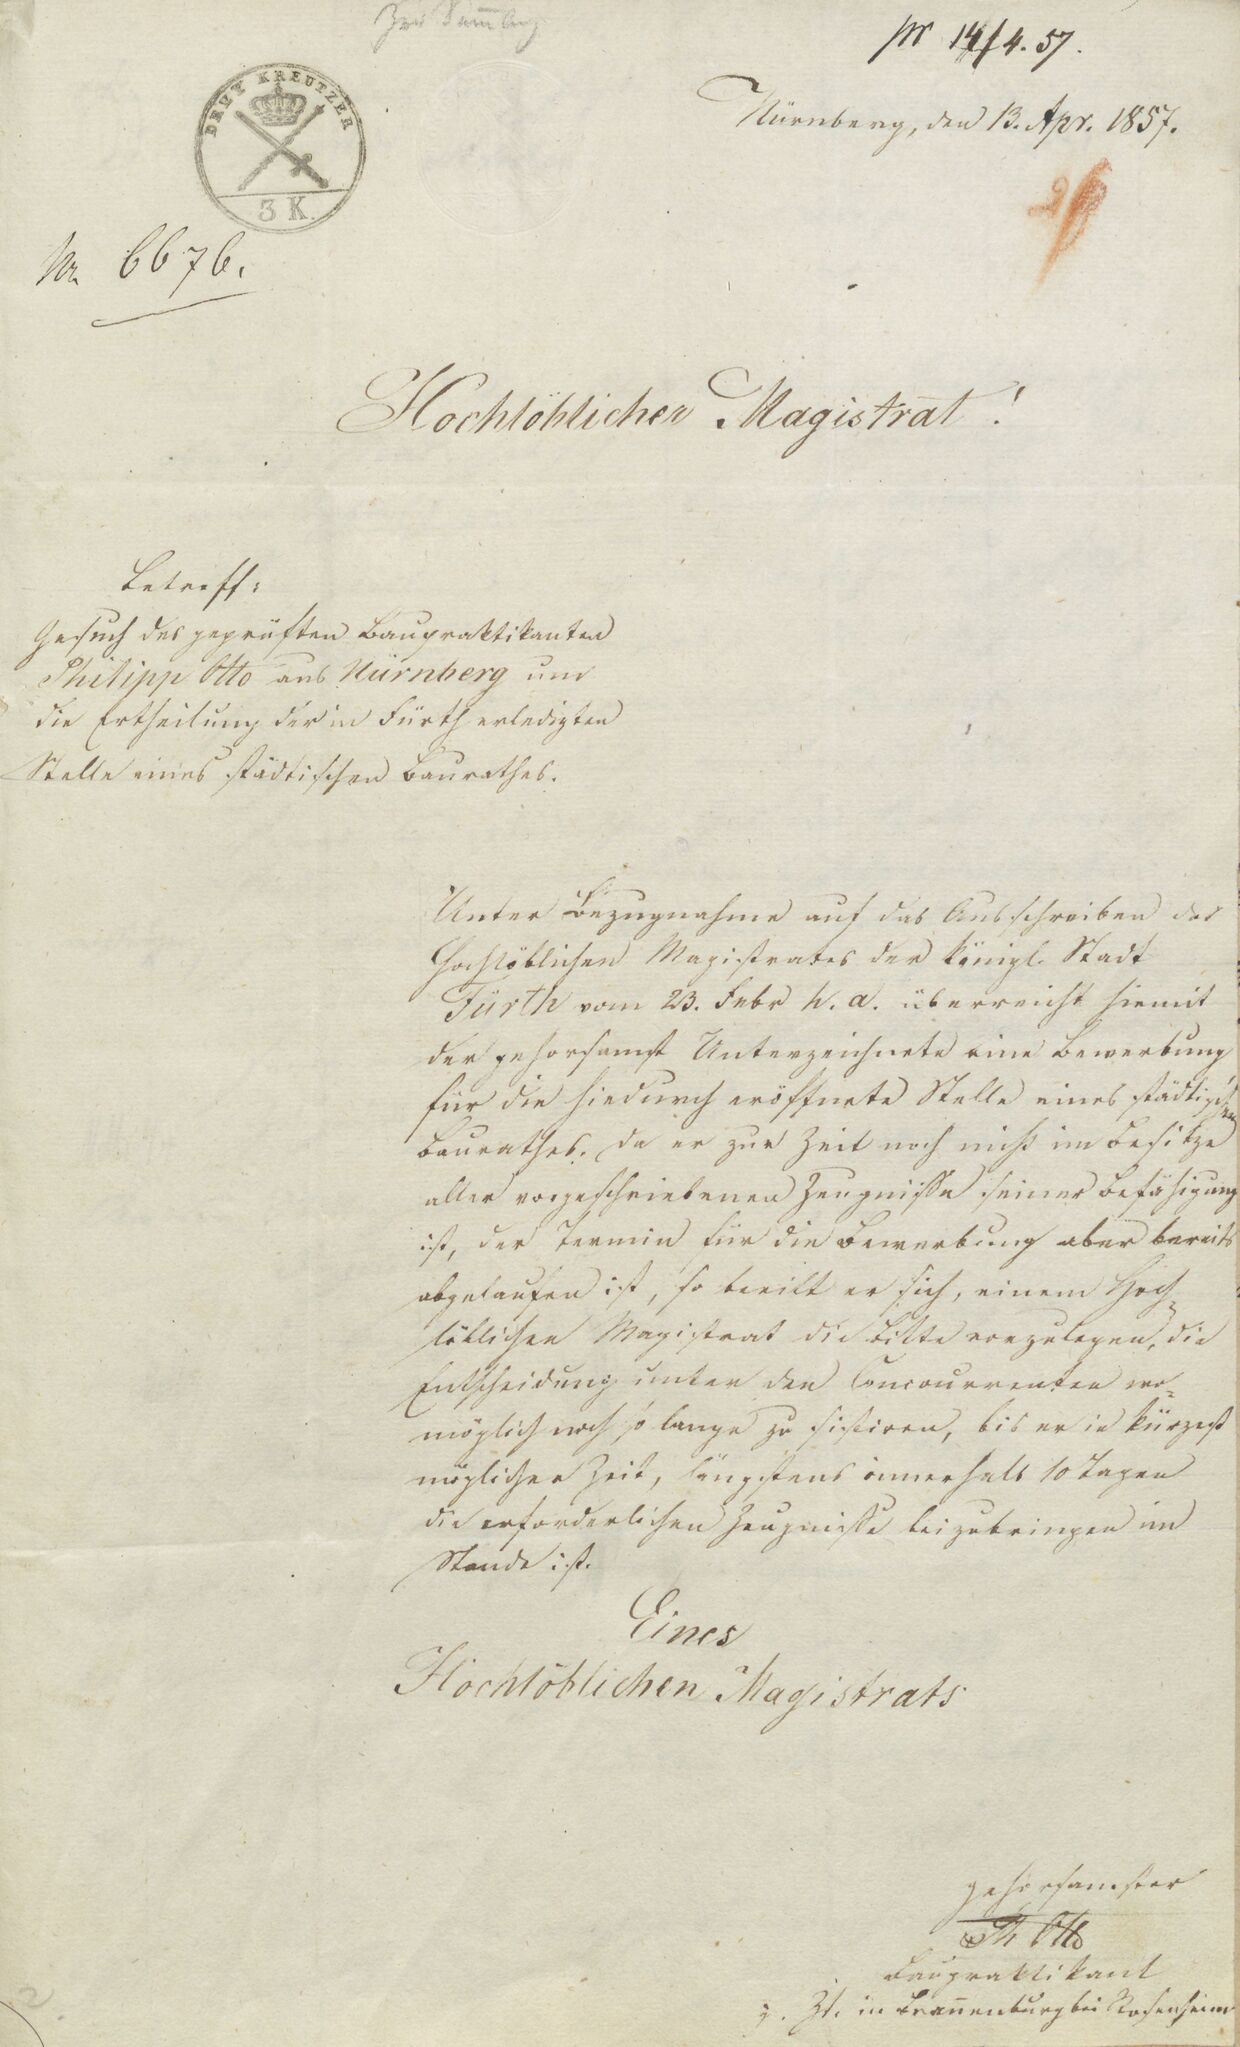 Zur Samlung
pr 14/4. 57.
DREY KREUTZER
3 K.
Nürnberg, den 13. Apr. 1857.
Nr. 6676.
Hochlöblicher Magistrat!
Betreff:
Gesuch des geprüften Baupraktikanten
Philipp Otto aus Nürnberg um
die Ertheilung der in Fürth erledigten
Stelle eines städtischen Baurathes.
Unter Bezugnahme auf das Ausschreiben des
Hochlöblichen Magistrates der königl. Stadt
Fürth vom 23. Febr h. a. überreicht hiemit
der gehorsamst Unterzeichnete eine Bewerbung
für die hiedurch eröffnete Stelle eines städtischen
Baurathes. Da er zur Zeit noch nicht im Besitze
aller vorgeschriebenen Zeugnisse seiner Befähigung
ist, der Termin für die Bewerbung aber bereits
abgelaufen ist, so beeilt er sich, einem Hoch-
löblichen Magistrat die Bitte vorzulegen, die
Entscheidung unter den Concourrenten wo-
möglich noch so lange zu sistiren, bis er in kürzest
möglicher Zeit, längstens innerhalb 10 Tagen
die erforderlichen Zeugnisse beizubringen im
Stande ist.
Eines
Hochlöblichen Magistrats
gehorsamster
Ph Otto
Baupraktikant
z. Zt. in Brannenburg bei Rosenheim
2